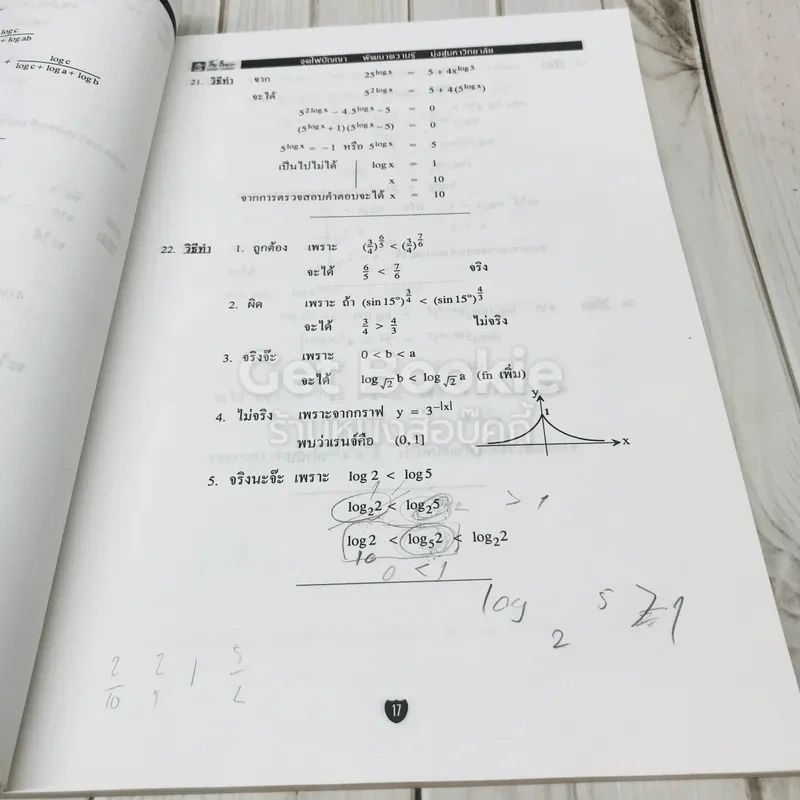 logc
+ logab
+ logc
logc + loga + logb
จุดไฟปัญญา พัฒนาความรู้ มุ่งสู่มหาวิทยาลัย
21. วิธีทำ จาก 25^logx = 5 + 4x^log5
จะได้ 5^2logx = 5 + 4(5^logx)
5^2logx − 4.5^logx − 5 = 0
(5^logx + 1)(5^logx − 5) = 0
5^logx = −1 หรือ 5^logx = 5
เป็นไปไม่ได้ logx = 1
x = 10
จากการตรวจสอบคำตอบจะได้ x = 10
22. วิธีทำ 1. ถูกต้อง เพราะ (3/4)^6/5 < (3/4)^7/6
จะได้ 6/5 < 7/6 จริง
2. ผิด เพราะ ถ้า (sin 15°)^3/4 < (sin 15°)^4/3
จะได้ 3/4 > 4/3 ไม่จริง
3. จริงจ๊ะ เพราะ 0 < b < a
จะได้ log√2 b < log√2 a (fn เพิ่ม)
Get Bookie
ร้านหนังสือบุ๊คกี้
4. ไม่จริง เพราะจากกราฟ y = 3^−|x|
พบว่าเรนจ์คือ (0, 1]
y
1
x
5. จริงนะจ๊ะ เพราะ log 2 < log5
log₂2 < log₂5 > 1
log2 < log₅2 < log₂2
10
0 < 1
log₂ 5 > 1
2/10 2/5 1 5/2
17